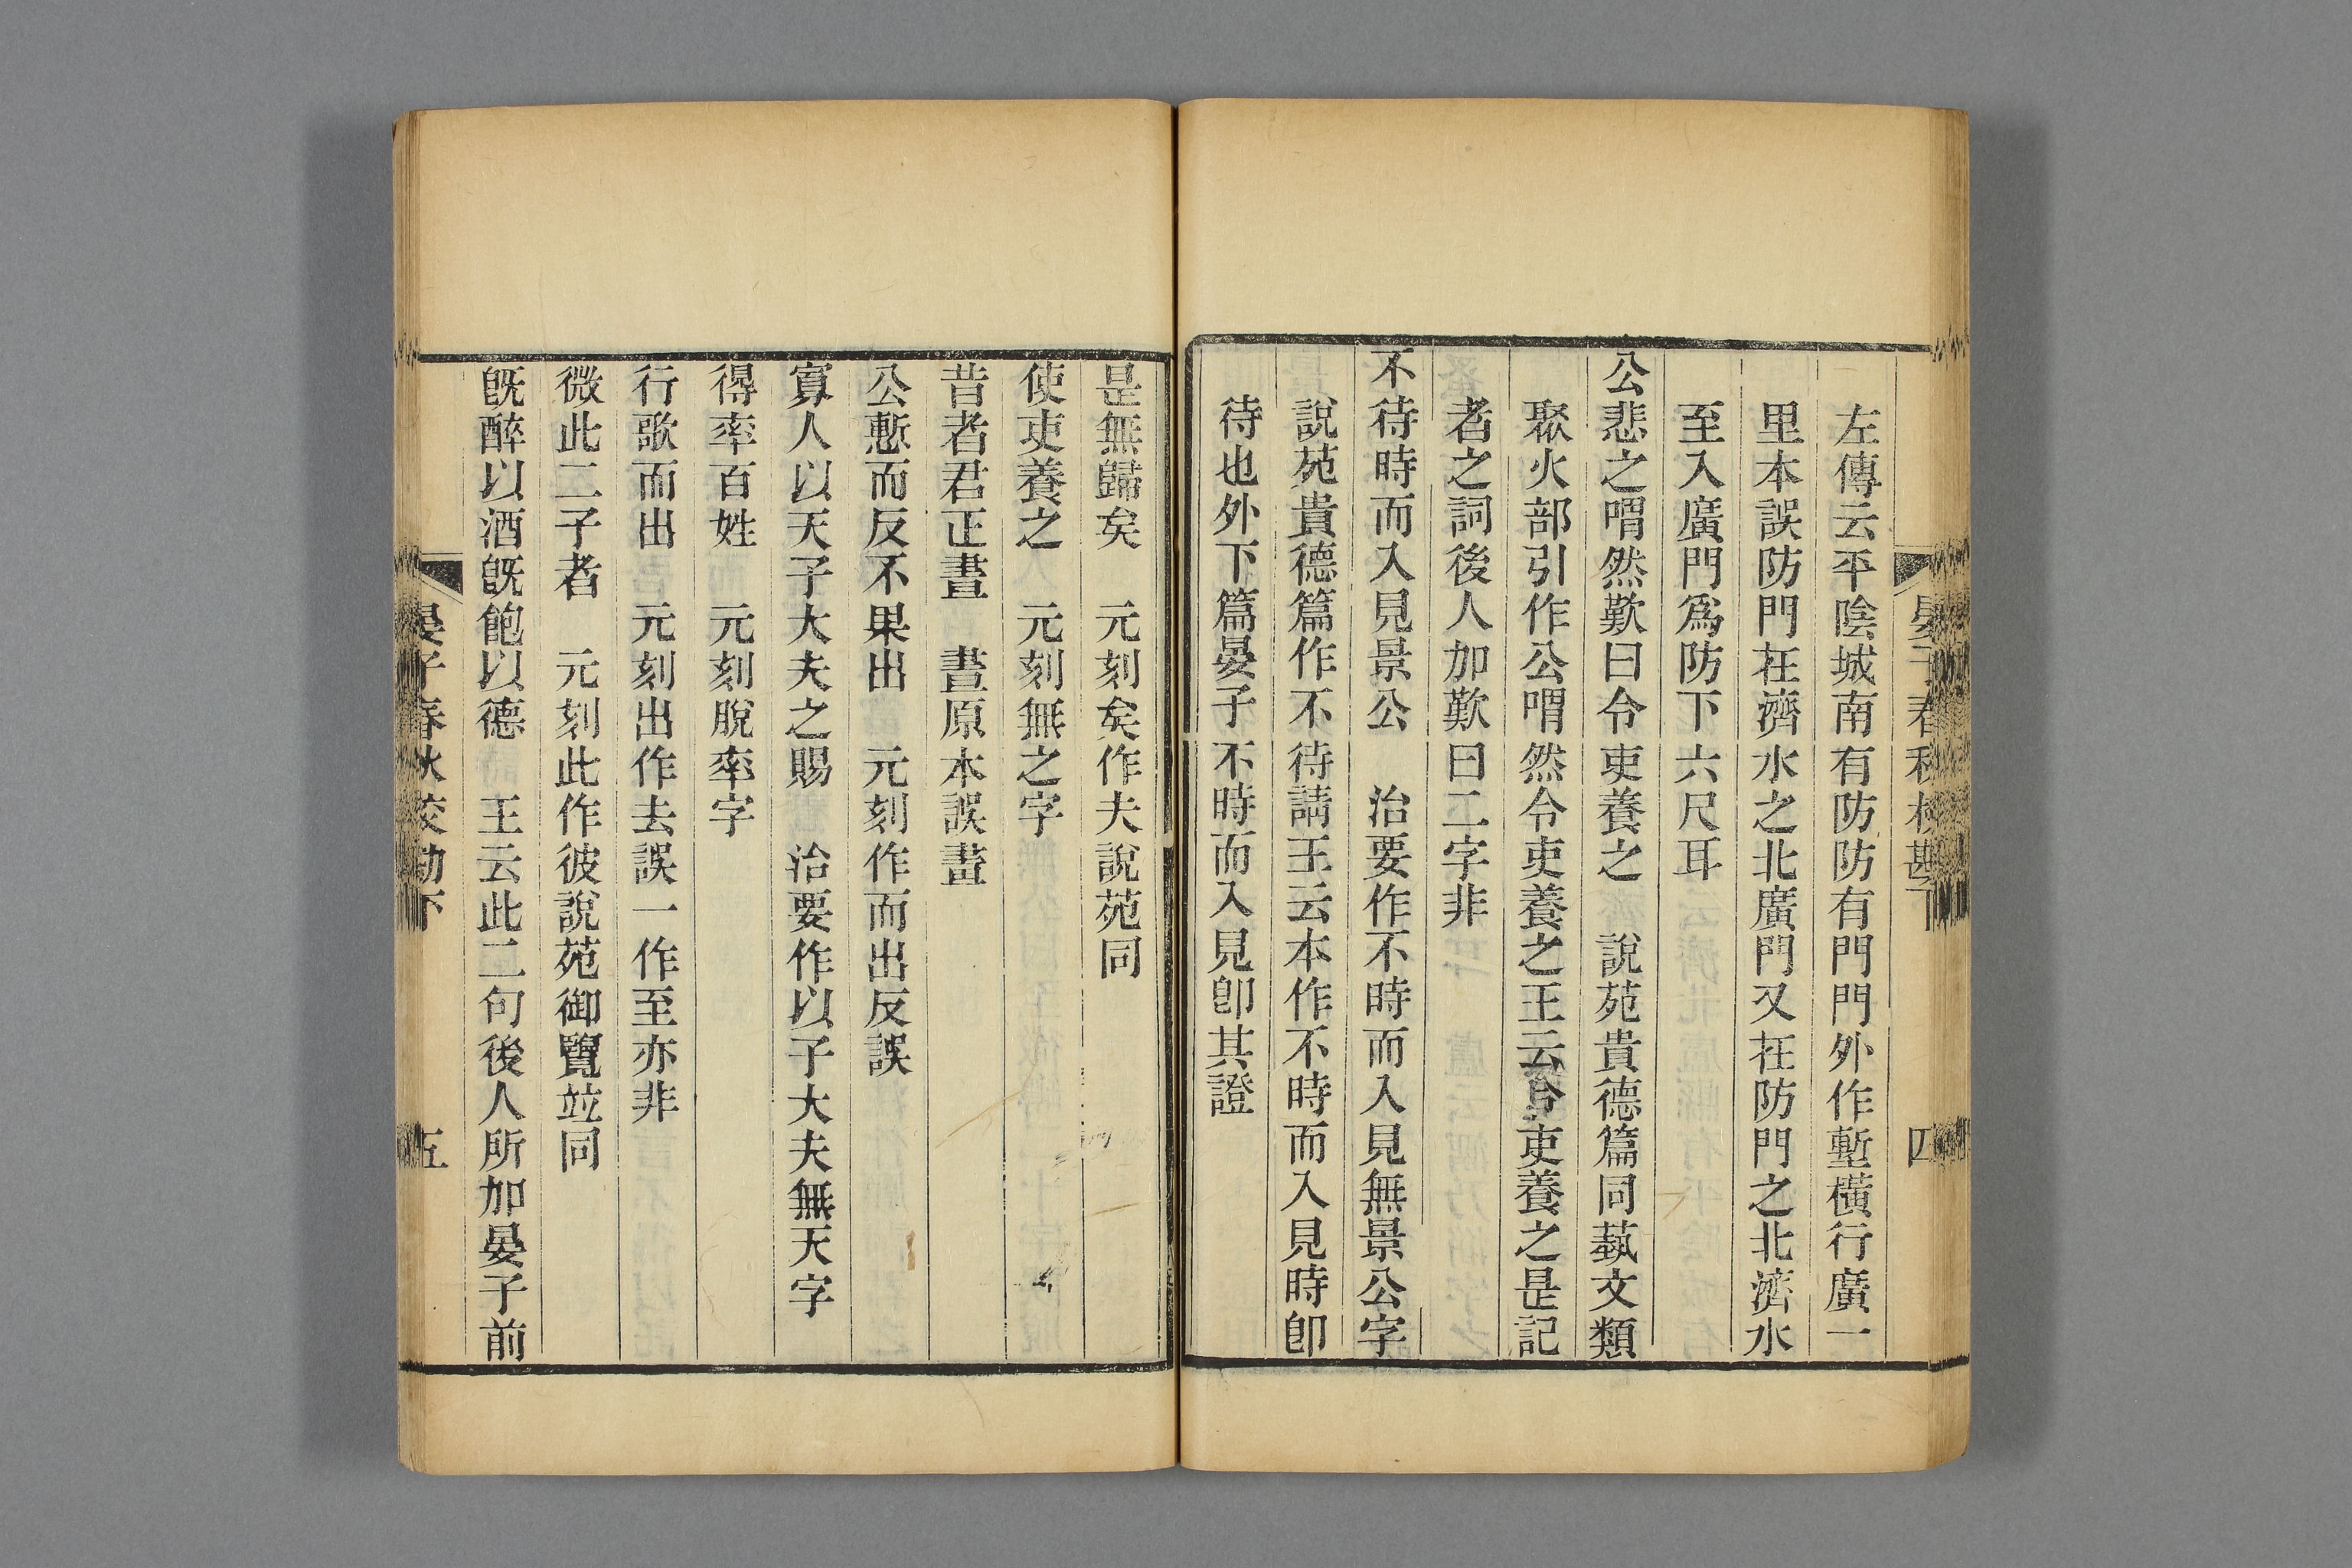 晏子春秋校勘下
四
左傳云平陰城南有防防有門門外作塹橫行廣一
里本誤防門在濟水之北廣門又在防門之北濟水
至入廣門爲防下六尺耳
公悲之喟然歎曰令吏養之　說苑貴德篇同蓺文類
聚火部引作公喟然令吏養之王云令吏養之是記
者之詞後人加歎曰二字非
不待時而入見景公　治要作不時而入見無景公字
說苑貴德篇作不待請王云本作不時而入見時卽
待也外下篇晏子不時而入見卽其證
是無歸矣　元刻矣作夫說苑同
使吏養之　元刻無之字
昔者君正晝　晝原本誤畫
公慙而反不果出　元刻作而出反誤
寡人以天子大夫之賜　治要作以子大夫無天字
得率百姓　元刻脫率字
行歌而出　元刻出作去誤一作至亦非
微此二子者　元刻此作彼說苑御覽竝同
旣醉以酒旣飽以德　王云此二句後人所加晏子前
晏子春秋校勘下
五